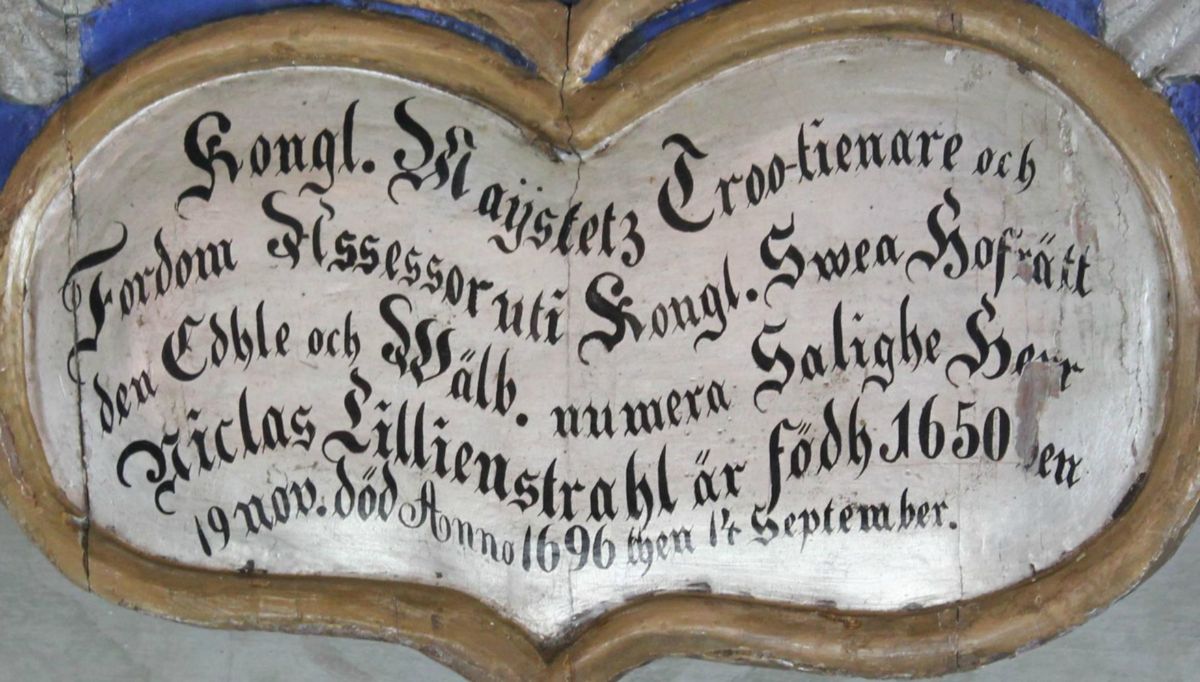 Kongl. Mayÿsketz Troo-tienare och
Fordom Assessor uti Kongl. Swea Hofrätt
den Edhle och Wälb. numera Salighe Herr
Niclas Lillienstrahl är födh 1650
19 nov. död Anno 1696 then 14 September.